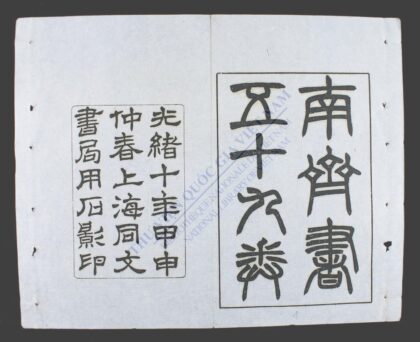 南齊書
五十九卷
光緒十年甲申
仲春上海同文
書局用石影印
THƯ VIỆN QUỐC GIA VIỆT NAM
BIBLIOTHÈQUE NATIONALE DU VIETNAM
NATIONAL LIBRARY OF VIETNAM